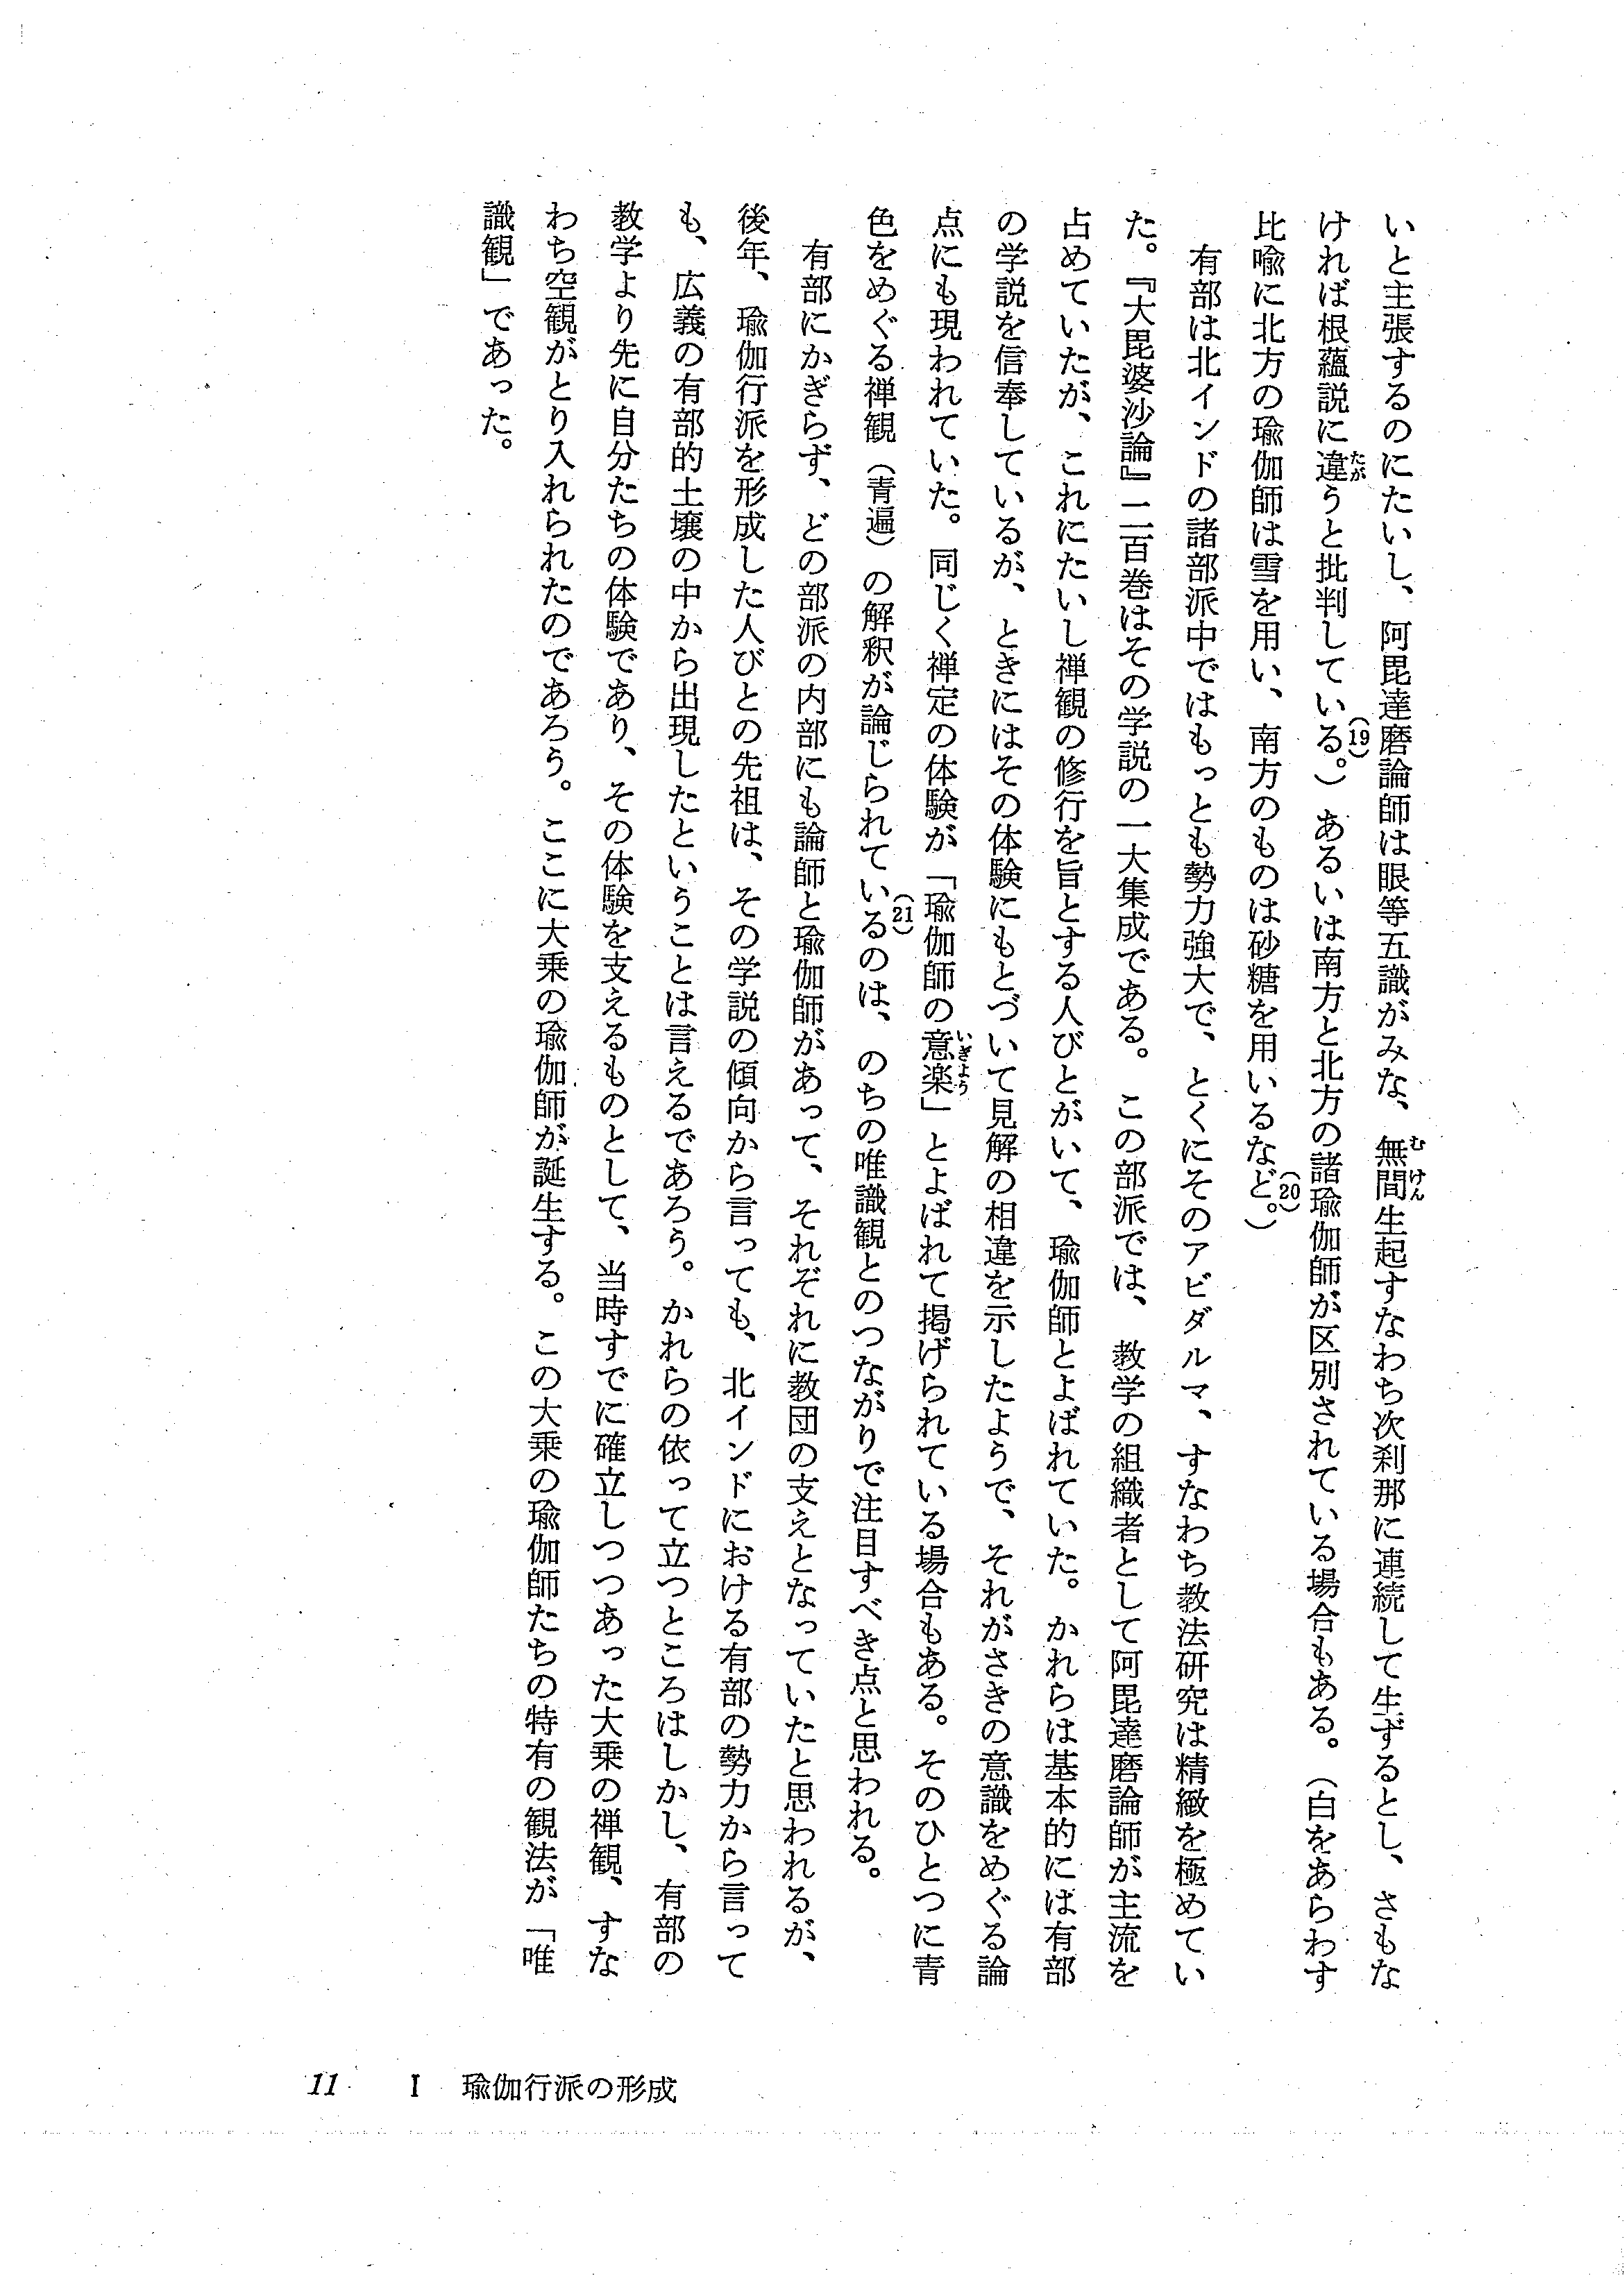 いと主張するのにたいし、阿毘達磨論師は眼等五識がみな、無間生起すなわち次刹那に連続して生ずるとし、さもな
むけん
ければ根蘊説に違うと批判している。）あるいは南方と北方の諸瑜伽師が区別されている場合もある。（白をあらわす
たが
(19)
比喩に北方の瑜伽師は雪を用い、南方のものは砂糖を用いるなど。）
(20)
有部は北インドの諸部派中ではもっとも勢力強大で、とくにそのアビダルマ、すなわち教法研究は精緻を極めてい
た。『大毘婆沙論』二百巻はその学説の一大集成である。この部派では、教学の組織者として阿毘達磨論師が主流を
占めていたが、これにたいし禅観の修行を旨とする人びとがいて、瑜伽師とよばれていた。かれらは基本的には有部
の学説を信奉しているが、ときにはその体験にもとづいて見解の相違を示したようで、それがさきの意識をめぐる論
点にも現われていた。同じく禅定の体験が「瑜伽師の意楽」とよばれて掲げられている場合もある。そのひとつに青
いぎよう
色をめぐる禅観（青遍）の解釈が論じられているのは、のちの唯識観とのつながりで注目すべき点と思われる。
(21)
有部にかぎらず、どの部派の内部にも論師と瑜伽師があって、それぞれに教団の支えとなっていたと思われるが、
後年、瑜伽行派を形成した人びとの先祖は、その学説の傾向から言っても、北インドにおける有部の勢力から言って
も、広義の有部的土壌の中から出現したということは言えるであろう。かれらの依って立つところはしかし、有部の
教学より先に自分たちの体験であり、その体験を支えるものとして、当時すでに確立しつつあった大乗の禅観、すな
わち空観がとり入れられたのであろう。ここに大乗の瑜伽師が誕生する。この大乗の瑜伽師たちの特有の観法が「唯
識観」であった。
11 I 瑜伽行派の形成